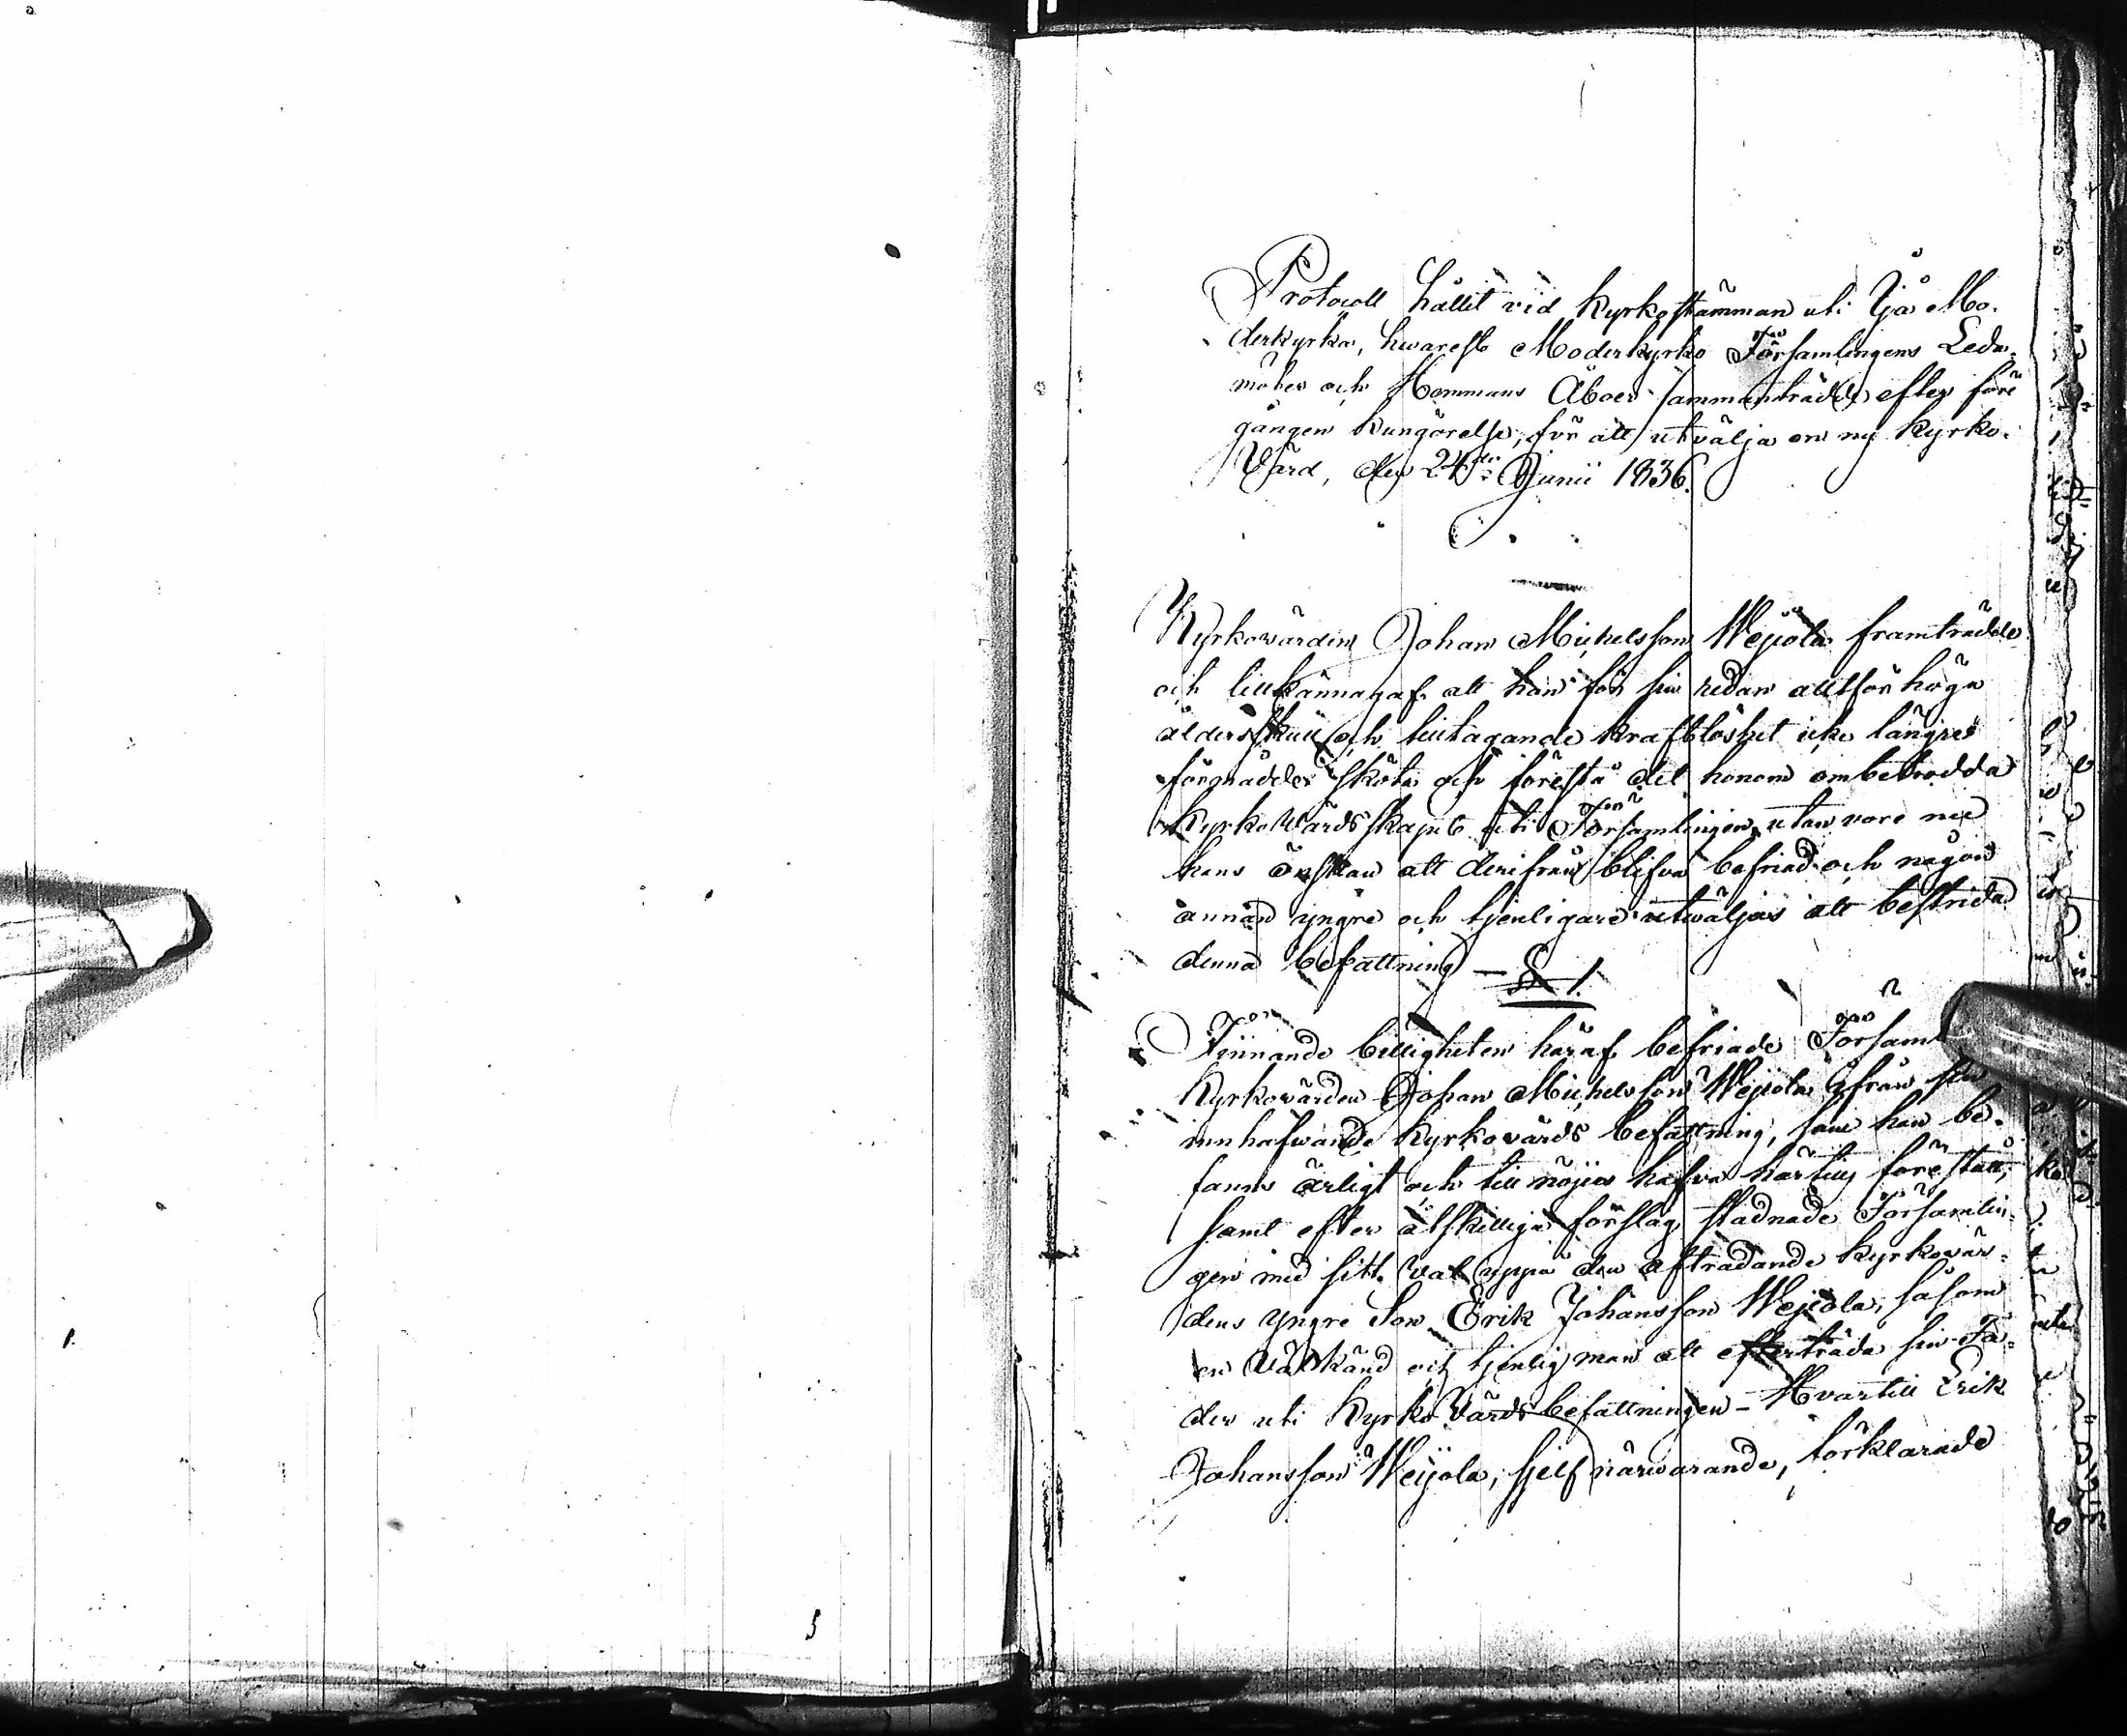 Protocoll hållit vid Kyrkostämman uti Ijå Mo-
derkyrka, hwarest Moderkyrko Församlingens Leda-
möter och Hemmans Åboer sammanträdde efter före
gången kungörelse, för att utvälja en ny Kyrko-
Vård, den 24de Junii 1836.
Kyrkovärden Johan Michelsson Weijola framträdde
och tillkännagaf att han för sin redan alltför höga
ålders skull och tilltagande kraftlöshet icke längre
förmådde sköta och förestå det honom ombetrodda
KyrkoVärdsskapet uti Församlingen, utan vore nu
hans önskan att derifrån blifva befriad och någon
annan yngre och tjenligare utwäljas att bestrida
denna befattning — § 1.
Finnande billigheten häraf befriade Församl
Kyrkovärden Johan Michelsson Weijola ifrån sin
innhafwande Kyrkovärds befattning, som han be-
fanns ärligt och till nöjes hafva härtill förestått,
samt efter åtskilliga förslag stadnade Församlin-
gen med sitt val uppå den afträdande Kyrkovär-
dens yngre Son Erik Johansson Weijola, såsom
en välkänd och tjenlig man att efterträda sin Fa-
der uti KyrkoVärdsbefattningen – Hvartill Erik
Johansson Weijola, sjelf närwarande, förklarade